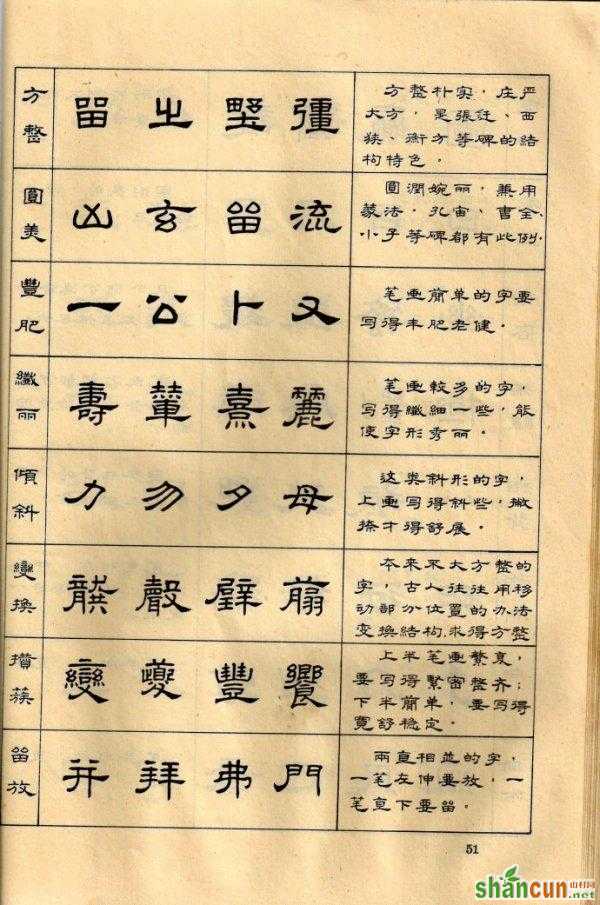 方整
留 之 彊
方整朴实，庄严
大方，是張迁、西
狭、衡方等碑的結
构特色。
圓美
凶 玄 留 流
圓潤婉丽，兼用
篆法，孔宙、曹全、
小子等碑都有此例.
豐肥
一 公 卜 又
笔画簡单的字要
写得丰肥老健。
纖丽
壽 輦 熹 麗
笔画較多的字，
写得纖細一些，能
使字形秀丽。
傾斜
力 勿 夕 母
这类斜形的字，
上画写得斜些，撇
捺才得舒展。
變換
聲 翦
本来不大方整的
字，古人往往用移
动部分位置的办法
变換結构，求得方整
攢蔟
變 夔 豐 饗
上半笔画繁复，
要写得緊密整齐；
下半簡单，要写得
寬舒稳定。
留放
并 拜 弗 門
兩直相並的字，
一笔左伸要放，一
笔直下要留。
51
shancun 山村网
.net